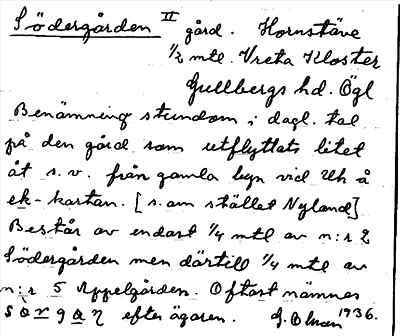 Södergården II gård. Hornstäve
1/2 mtl. Vreta Kloster
Gullbergs hd. Ögl
Benämning stundom i dagl. tal
på den gård som utflyttats litet
åt s.v. från gamla byn vid Uh å
ek-kartan. [s.am stället Nyland]
Består av endast 1/4 mtl av n:r 2
Södergården men därtill 1/4 mtl av
n:r 5 Appelgården. Oftast nämnes
efter ägaren. G. Olson 1936.